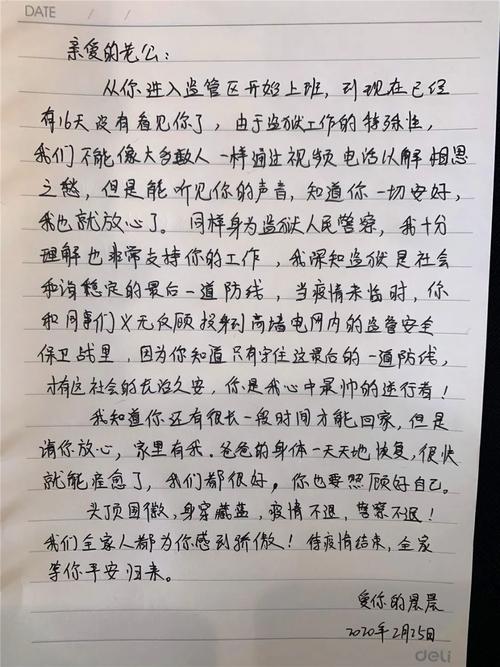 DATE / /
亲爱的老公：
从你进入监管区开始上班，到现在已经
有16天没有看见你了，由于监狱工作的特殊性，
我们不能像大多数人一样通过视频电话以解相思
之愁，但是能听见你的声音，知道你一切安好，
我也就放心了。同样身为监狱人民警察，我十分
理解也非常支持你的工作，我深知监狱是社会
和谐稳定的最后一道防线，当疫情来临时，你
和同事们义无反顾投身到高墙电网内的监管安全
保卫战里，因为你知道只有守住这最后的一道防线，
才有这社会的长治久安，你是我心中最帅的逆行者！
我知道你还有很长一段时间才能回家，但是
请你放心，家里有我。爸爸的身体一天天地恢复，很快
就能痊愈了，我们都很好。你也要照顾好自己。
头顶国徽，身穿藏蓝，疫情不退，警察不退！
我们全家人都为你感到骄傲！待疫情结束，全家
等你平安归来。
爱你的晨晨
2020年2月25日
deli